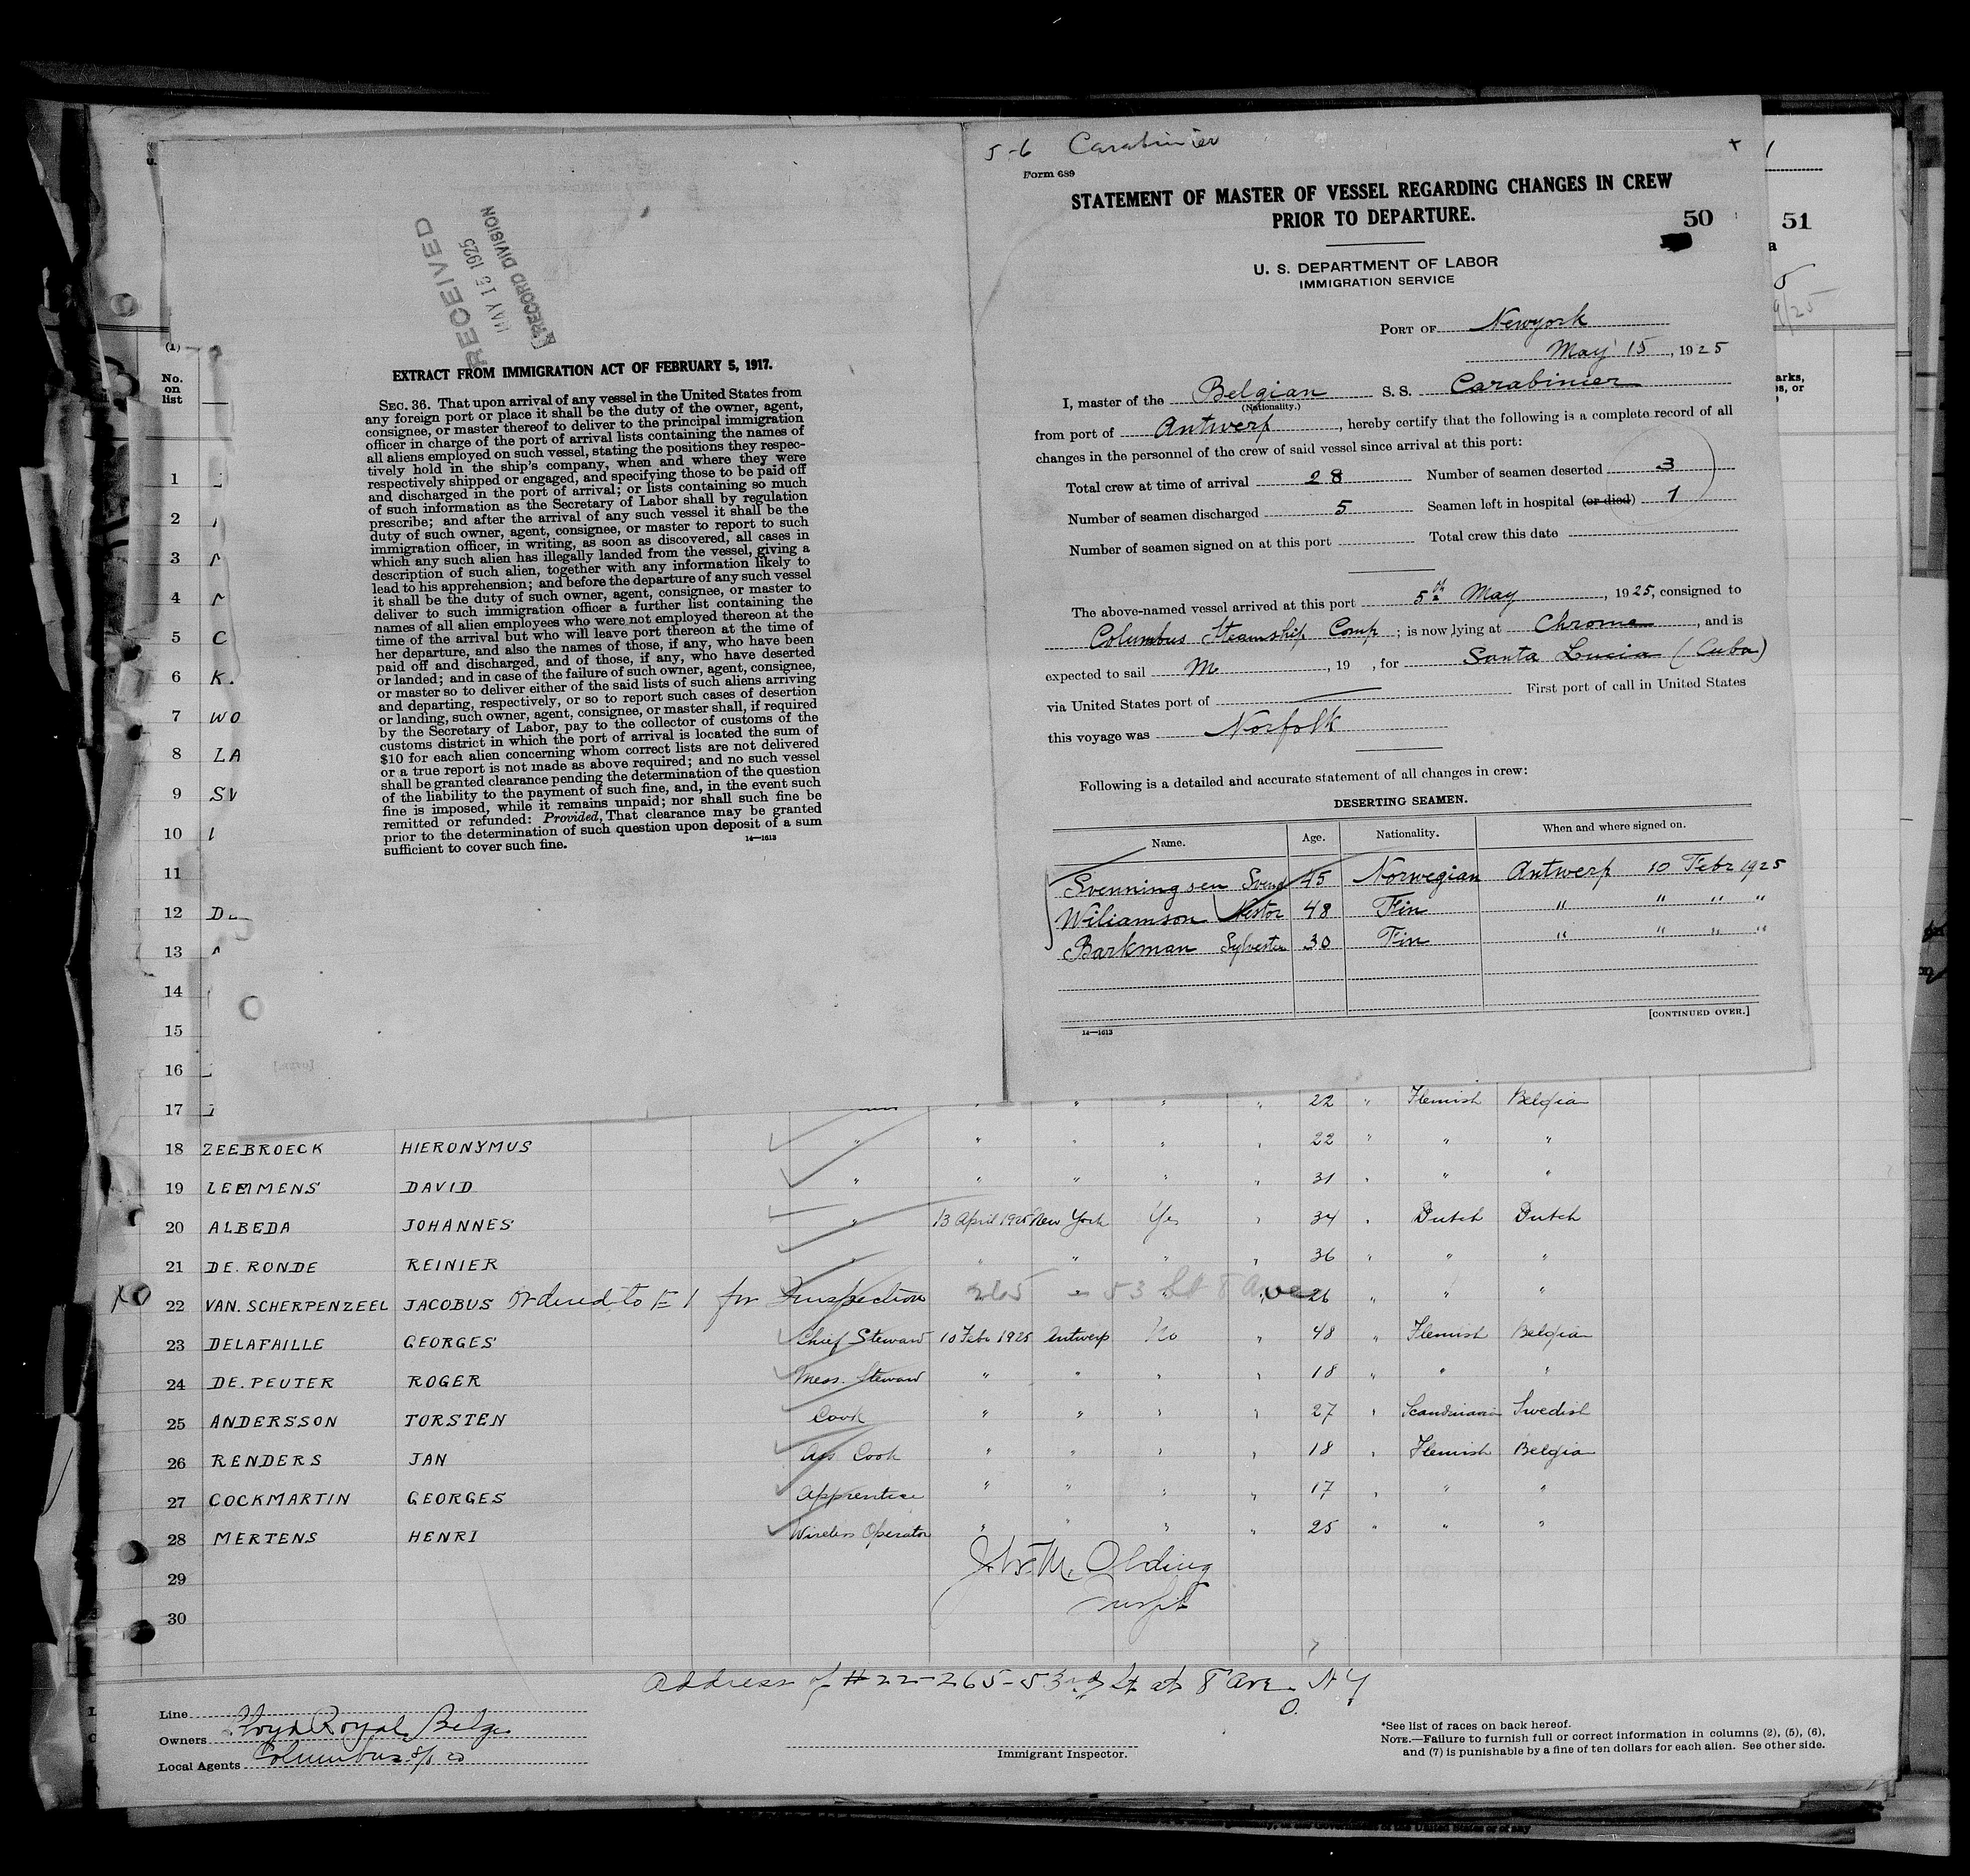 5-6 Carabinier
Form 689
STATEMENT OF MASTER OF VESSEL REGARDING CHANGES IN CREW
PRIOR TO DEPARTURE.
50
51
U. S. DEPARTMENT OF LABOR
IMMIGRATION SERVICE
PORT OF Newyork
May 15, 1925
I, master of the Belgian S. S. Carabinier
(Nationality.)
from port of Antwerp, hereby certify that the following is a complete record of all
changes in the personnel of the crew of said vessel since arrival at this port:
Total crew at time of arrival 28 Number of seamen deserted 3
Number of seamen discharged 5 Seamen left in hospital (or died) 1
Number of seamen signed on at this port Total crew this date
The above-named vessel arrived at this port 5th May, 1925, consigned to
Columbus Steamship Comp; is now lying at Chrome, and is
expected to sail M, 19 , for Santa Lucia (Cuba)
via United States port of First port of call in United States
this voyage was Norfolk
Following is a detailed and accurate statement of all changes in crew:
DESERTING SEAMEN.
Name. Age. Nationality. When and where signed on.
Svenningsen Svend 45 Norwegian Antwerp 10 Febr 1925
Wiliamson Nestor 48 Fin " " " "
Barkman Sylvester 30 Fin " " " "
[CONTINUED OVER.]
14—1613
RECEIVED
MAY 15 1925
RECORD DIVISION
EXTRACT FROM IMMIGRATION ACT OF FEBRUARY 5, 1917.
SEC. 36. That upon arrival of any vessel in the United States from
any foreign port or place it shall be the duty of the owner, agent,
consignee, or master thereof to deliver to the principal immigration
officer in charge of the port of arrival lists containing the names of
all aliens employed on such vessel, stating the positions they respec-
tively hold in the ship's company, when and where they were
respectively shipped or engaged, and specifying those to be paid off
and discharged in the port of arrival; or lists containing so much
of such information as the Secretary of Labor shall by regulation
prescribe; and after the arrival of any such vessel it shall be the
duty of such owner, agent, consignee, or master to report to such
immigration officer, in writing, as soon as discovered, all cases in
which any such alien has illegally landed from the vessel, giving a
description of such alien, together with any information likely to
lead to his apprehension; and before the departure of any such vessel
it shall be the duty of such owner, agent, consignee, or master to
deliver to such immigration officer a further list containing the
names of all alien employees who were not employed thereon at the
time of the arrival but who will leave port thereon at the time of
her departure, and also the names of those, if any, who have been
paid off and discharged, and of those, if any, who have deserted
or landed; and in case of the failure of such owner, agent, consignee,
or master so to deliver either of the said lists of such aliens arriving
and departing, respectively, or so to report such cases of desertion
or landing, such owner, agent, consignee, or master shall, if required
by the Secretary of Labor, pay to the collector of customs of the
customs district in which the port of arrival is located the sum of
$10 for each alien concerning whom correct lists are not delivered
or a true report is not made as above required; and no such vessel
shall be granted clearance pending the determination of the question
of the liability to the payment of such fine, and, in the event such
fine is imposed, while it remains unpaid; nor shall such fine be
remitted or refunded: Provided, That clearance may be granted
prior to the determination of such question upon deposit of a sum
sufficient to cover such fine.
14—1613
(1)
No.
on
list
1
2
3
4
5 C
6 K.
7 WO
8 LA
9 SV
10
11
12 D
13
14
15
16
17 " " " " 22 " Flemish Belgia
18 ZEEBROECK HIERONYMUS " " " " " 22 " " "
19 LEMMENS DAVID " " " " " 31 " " "
20 ALBEDA JOHANNES " 13 April 1925 New York Yes " 34 " Dutch Dutch
21 DE. RONDE REINIER " " " " " 36 " " "
22 VAN. SCHERPENZEEL JACOBUS Ordered to E I for Inspection 265 - 53 St 8 Ave 26 " " "
23 DELAFAILLE GEORGES Chief Steward 10 Febr 1925 Antwerp No " 48 " Flemish Belgia
24 DE. PEUTER ROGER Mess. Steward " " " " 18 " " "
25 ANDERSSON TORSTEN Cook " " " " 27 " Scandinavia Swedish
26 RENDERS JAN Ass Cook " " " " 18 " Flemish Belgia
27 COCKMARTIN GEORGES Apprentice " " " " 17 " " "
28 MERTENS HENRI Wireless Operator " " " " 25 " " "
29
30
Address of #22-265-53rd St at 8 Ave. N Y
Line
Owners Lloyd Royal Belge
Local Agents Columbus S/S Co
Immigrant Inspector.
*See list of races on back hereof.
NOTE.—Failure to furnish full or correct information in columns (2), (5), (6),
and (7) is punishable by a fine of ten dollars for each alien. See other side.